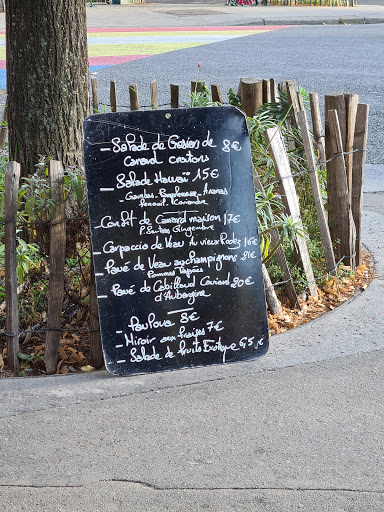 - Salade de Gesier de 8€
Canard croutons
- Salade Hawaï 15€
Gambas, Pamplemousse, Ananas
Fenouil, Coriandre
- Confit de Canard maison 17€
P. Sautées Gingembre
- Carpaccio de Veau Au vieux Rodez 16€
- Pavé de Veau aux champignons 21€
Pommes Tapées
- Pavé de Cabillaud Caviard 20€
d'Aubergine
- Pavlova 8€
- Miroir aux fraises 7€
- Salade de fruits Exotique 6,5€